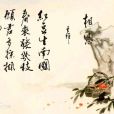 相思
王維
紅豆生南國
春來發幾枝
願君多採擷